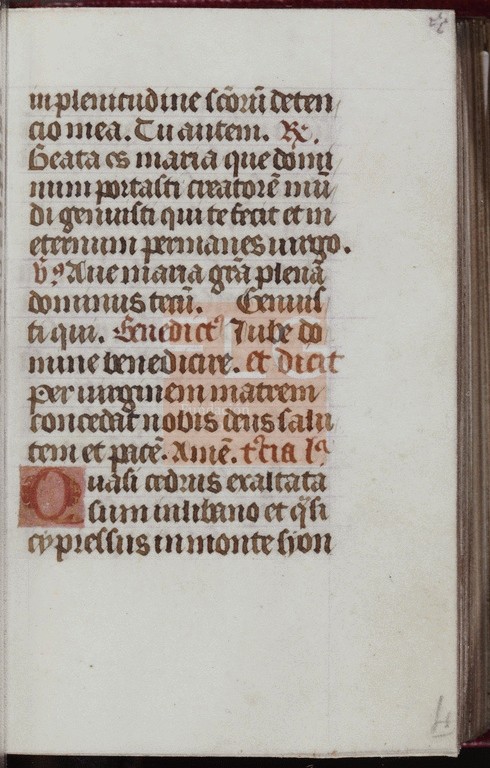 in plenitudine scōrū deten
cio mea. Tu autem. R̃.
Beata es maria que domi
num portasti creatorē mū
di genuisti qui te fecit et in
eternum permanes uirgo.
v̄. Aue maria grā plena
dominus tecū. Genuis
ti qui. Benedict' Iube do
mine benedicire. et dicit
per uirginem matrem
concedat nobis deus salu
tem et pacē. Amē. t'cia la
Quasi cedrus exaltata
sum in libano et q̄si
cypressus in monte syon